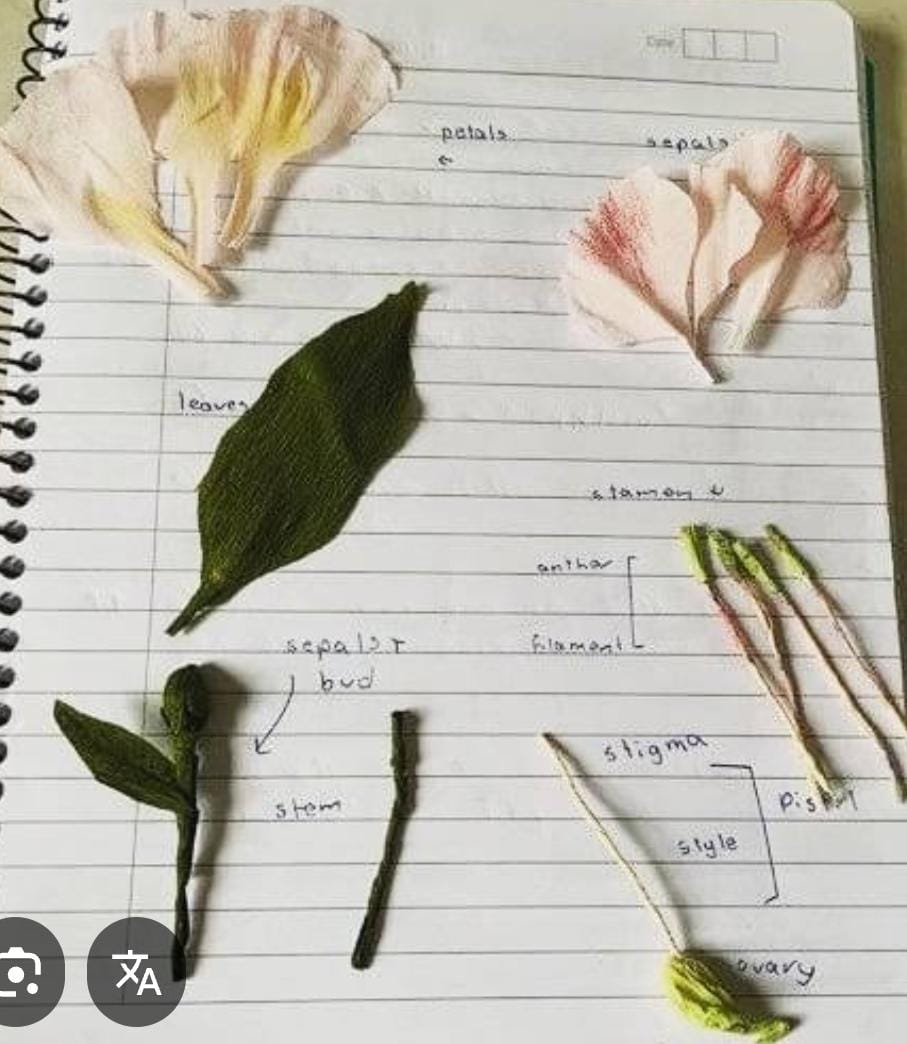 Date
petals
sepals
leaves
stamen
anthar
filament
sepals +
bud
stigma
stem
pistil
style
ovary